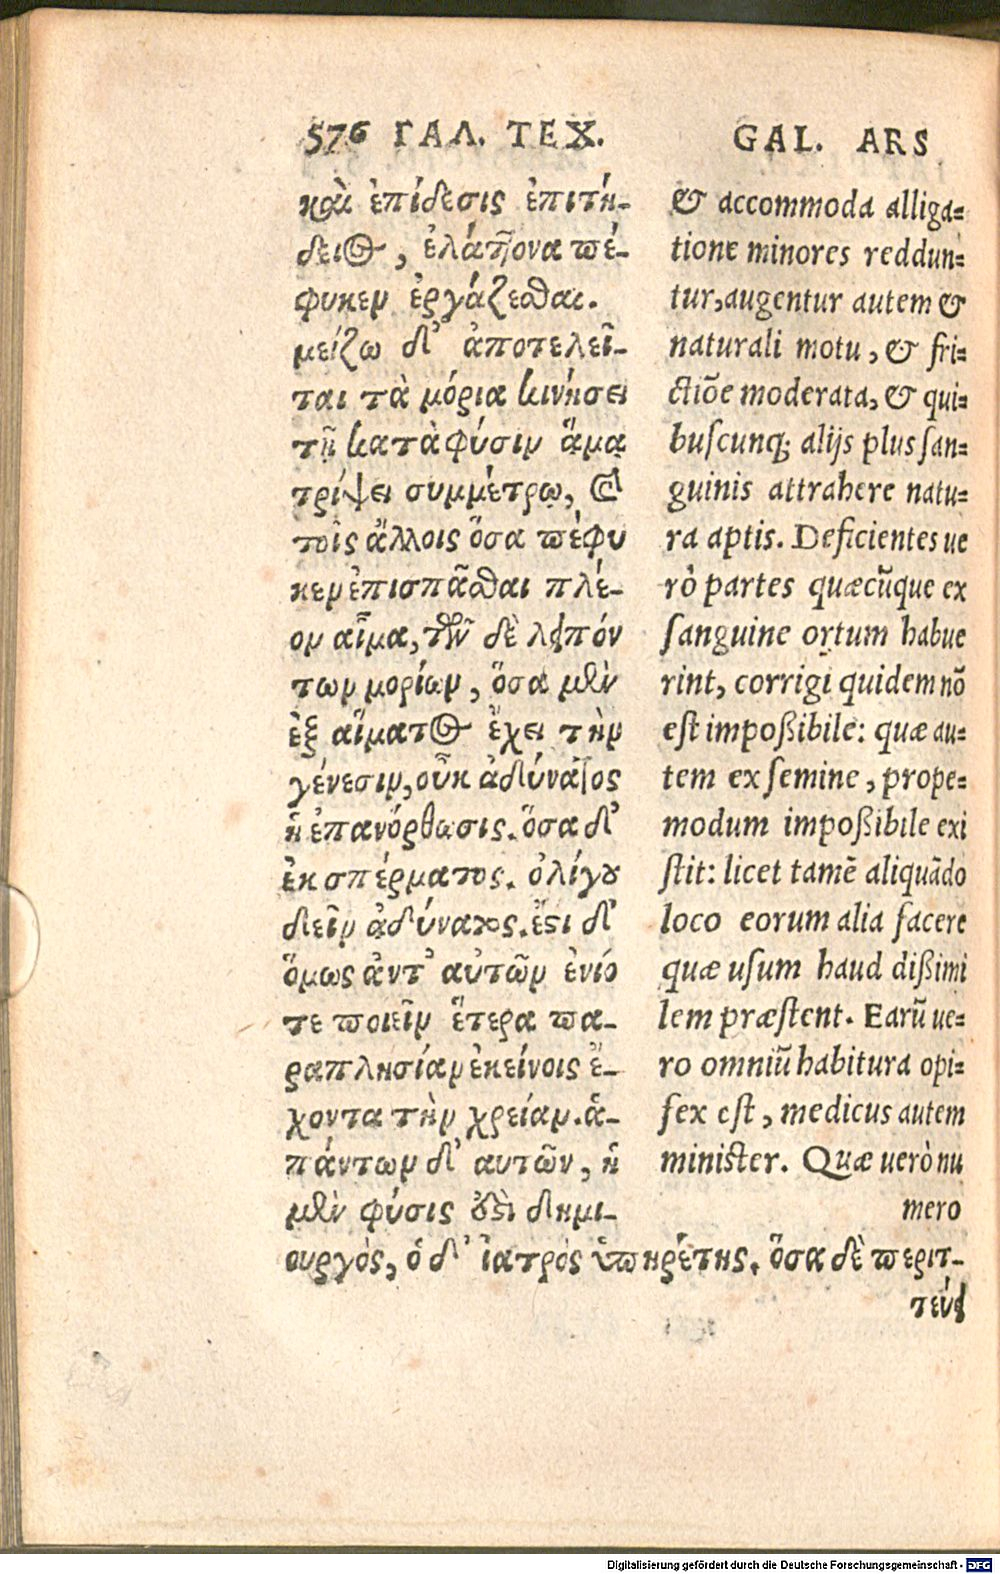 576 ΓΑΛ. ΤΕΧ.
καὶ ἐπίδεσις ἐπιτή-
δειος, ἐλάττονα πέ-
φυκεν ἐργάζεσθαι.
μείζω δ' ἀποτελεῖ-
ται τὰ μόρια κινήσει
τῇ κατὰ φύσιν ἅμα
τρίψει συμμέτρῳ, καὶ
τοῖς ἄλλοις ὅσα πέφυ
κεν ἐπισπᾶσθαι πλέ-
ον αἷμα, τῶν δὲ λοιπόν
των μορίων, ὅσα μὲν
ἐξ αἵματος ἔχει τὴν
γένεσιν, οὐκ ἀδύνατος
ἡ ἐπανόρθωσις. ὅσα δ'
ἐκ σπέρματος. ὀλίγου
διεῖν ἀδύνατος. ἔστι δ'
ὅμως ἀντ' αὐτῶν ἐνίο
τε ποιεῖν ἕτερα πα-
ραπλησίαν ἐκείνοις ἔ-
χοντα τὴν χρείαν. ἁ-
πάντων δ' αυτῶν, ἡ
μὲν φύσις ἐστὶ δημι-
ουργός, ὁ δ' ἰατρὸς ὑπηρέτης. ὅσα δὲ περιτ-
τεύει
GAL. ARS
& accommoda alliga=
tione minores reddun=
tur, augentur autem &
naturali motu, & fri=
ctiōe moderata, & qui=
buſcunq; alijs plus ſan=
guinis attrahere natu=
ra aptis. Deficientes ue
rò partes quæcũque ex
ſanguine ortum habue
rint, corrigi quidem nō
eſt impoßibile: quæ au=
tem ex ſemine, prope=
modum impoßibile exi
ſtit: licet tamē aliquādo
loco eorum alia facere
quæ uſum haud dißimi
lem præſtent. Earũ ue=
ro omniũ habitura opi=
fex eſt, medicus autem
miniſter. Quæ uerò nu
mero
Digitalisierung gefördert durch die Deutsche Forschungsgemeinschaft - DFG